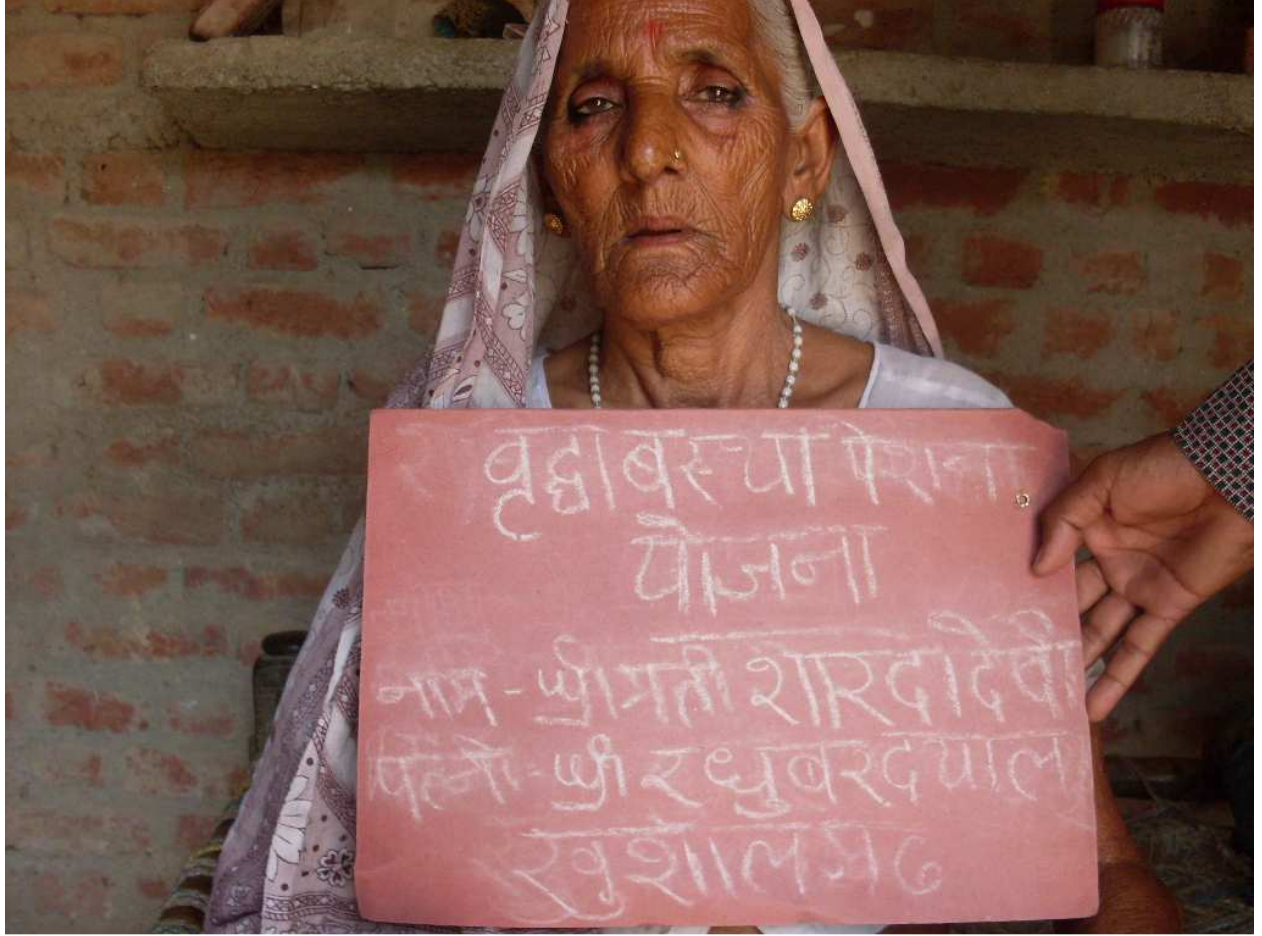 बृद्धाबस्था पेशन
योजना
नाम - श्रीमती शारदा देवी
पत्नी - श्री रघुबर दयाल